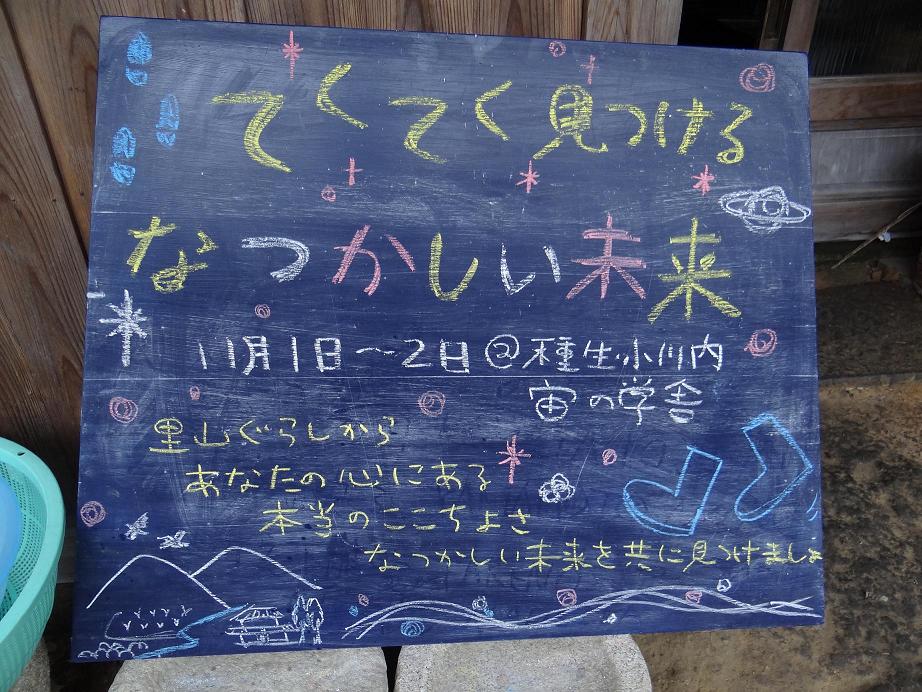 てくてく見つける
なつかしい未来
11月1日～2日@種生小川内
宙の学舎
里山ぐらしから
あなたの心にある
本当のここちよさ
なつかしい未来を共に見つけましょ